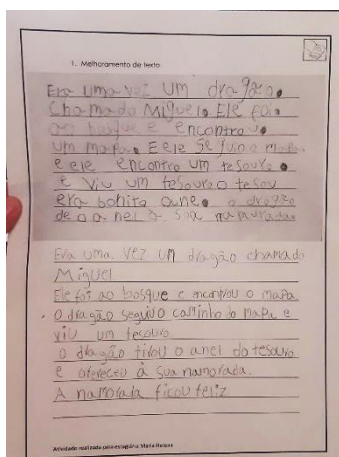 1. Melhoramento de texto
Era uma vez um dragão.
Chamado Miguel. Ele foi
ao bosque e encontrou
um mapa. E ele seguio o mapa
e ele encontro um tesouro.
e viu um tesouro o tesou
era bonito anel. o dragão
deo o anel a sua
Era uma vez um dragão chamado
Miguel
Ele foi ao bosque e encontrou o mapa
O dragão seguiu caminho do mapa e
viu um tesouro.
O dragão tirou o anel do tesouro
e ofereceu à sua namorada.
A namorada ficou feliz
Atividade realizada pela estagiária: Maria